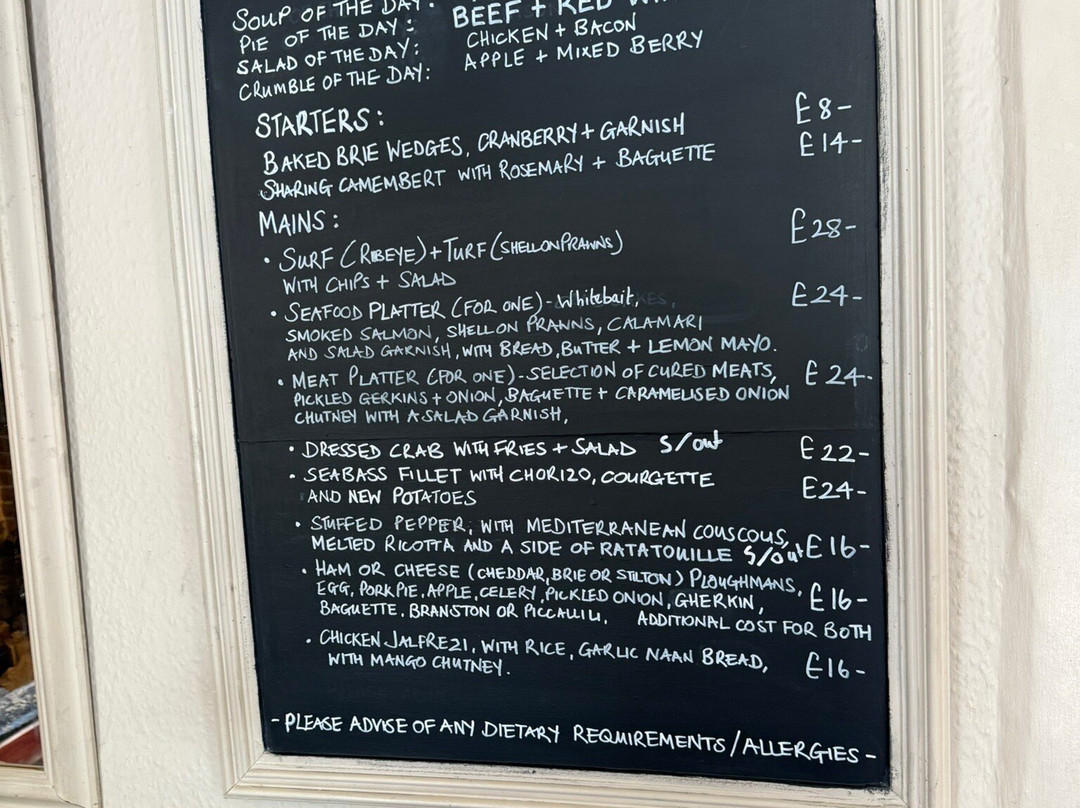 SOUP OF THE DAY:
PIE OF THE DAY: BEEF + RED
SALAD OF THE DAY: CHICKEN + BACON
CRUMBLE OF THE DAY: APPLE + MIXED BERRY
STARTERS:
BAKED BRIE WEDGES, CRANBERRY + GARNISH £8-
SHARING CAMEMBERT WITH ROSEMARY + BAGUETTE £14-
MAINS:
• SURF (RIBEYE) + TURF (SHELLON PRAWNS) £28-
WITH CHIPS + SALAD
• SEAFOOD PLATTER (FOR ONE) - Whitebait, £24-
SMOKED SALMON, SHELL ON PRAWNS, CALAMARI
AND SALAD GARNISH, WITH BREAD, BUTTER + LEMON MAYO.
• MEAT PLATTER (FOR ONE) - SELECTION OF CURED MEATS, £24-
PICKLED GERKINS + ONION, BAGUETTE + CARAMELISED ONION
CHUTNEY WITH A SALAD GARNISH,
• DRESSED CRAB WITH FRIES + SALAD S/out £22-
• SEABASS FILLET WITH CHORIZO, COURGETTE £24-
AND NEW POTATOES
• STUFFED PEPPER, WITH MEDITERRANEAN COUSCOUS,
MELTED RICOTTA AND A SIDE OF RATATOUILLE S/out £16-
• HAM OR CHEESE (CHEDDAR, BRIE OR STILTON) PLOUGHMANS,
EGG, PORK PIE, APPLE, CELERY, PICKLED ONION, GHERKIN, £16-
BAGUETTE, BRANSTON OR PICCALILI. ADDITIONAL COST FOR BOTH
• CHICKEN JALFREZI, WITH RICE, GARLIC NAAN BREAD, £16-
WITH MANGO CHUTNEY.
- PLEASE ADVISE OF ANY DIETARY REQUIREMENTS/ALLERGIES -